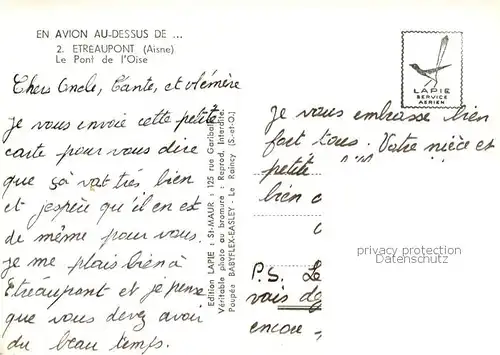 EN AVION AU-DESSUS DE ...
2. ETREAUPONT (Aisne)
Le Pont de l'Oise
Chers Oncle, Tante, et Mémère
Je vous envoie cette petite
carte pour vous dire
que sà vat trés bien
et j'espère qu'il en est
de même pour vous.
je me plais bien à
Etréaupont et je pense
que vous devez avoir
du beau temps.
Edition LAPIE - St-MAUR : 125 rue Garibaldi
Véritable photo au bromure : Reprod. Interdite
Poupée BABYFLEX-EASLEY - Le Raincy (S.-et-O.)
LAPIE
SERVICE
AERIEN
Je vous embrasse bien
fort tous. Votre nièce et
petite
bien
P.S.
vais
encore
privacy protection
Datenschutz